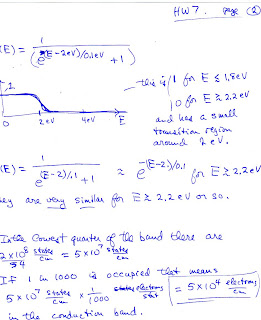 HW 7. Page ②
(E) = 1 / (e^(E-2eV)/0.1eV + 1)
this is 1 for E ≲ 1.8eV
0 for E ≳ 2.2eV
and has a small
transition region
around 2 eV.
1
0 2eV 4eV E
(E) = 1 / (e^(E-2)/.1 + 1) ≈ e^-(E-2)/0.1 for E ≳ 2.2 eV
ey are very similar for E ≳ 2.2 eV or so.
In the lowest quarter of the band there are
2×10^8 / 54 states/cm = 5×10^7 states/cm
If 1 in 1000 is occupied that means
5×10^7 states/cm × 1/1000 electrons/state = 5×10^4 electrons/cm
in the conduction band.